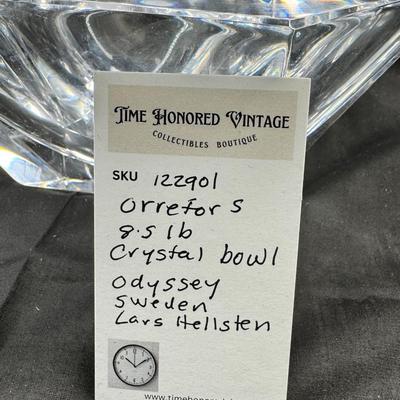 TIME HONORED VINTAGE
COLLECTIBLES BOUTIQUE
SKU 122901
Orrefors
8.5 lb
Crystal bowl
Odyssey
Sweden
Lars Hellsten